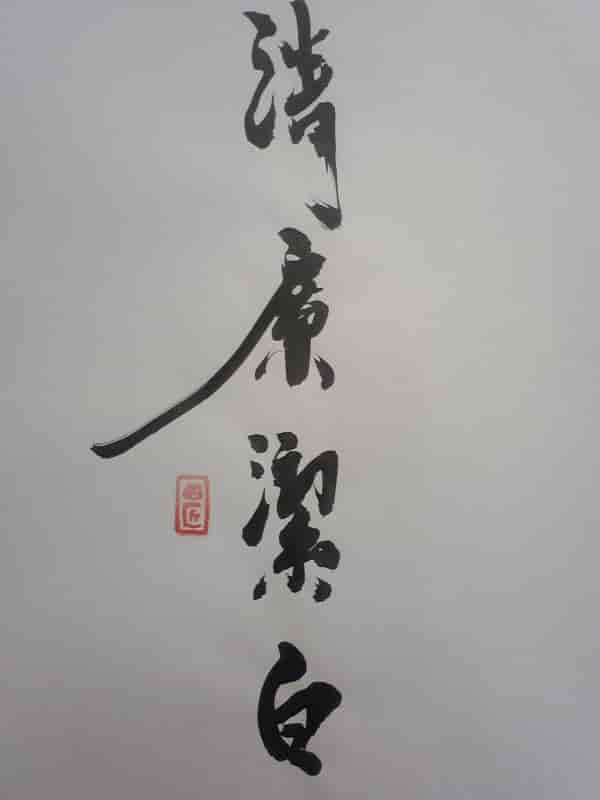 清廉潔白